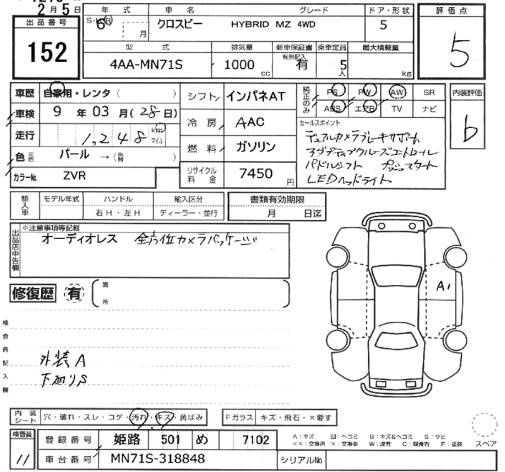 2月5日
出品番号
152
年式
S・H・R
6
月
車名
クロスビー
グレード
HYBRID MZ 4WD
ドア・形状
5
型式
4AA-MN71S
排気量
1000
cc
新車保証書
有側記入
有
乗車定員
5
人
最大積載量
kg
評価点
5
車歴
自家用・レンタ（　　）
車検
9 年 03 月 (28 日)
走行
1,248
km
マイル
色
パール → （　　）
カラーNo
ZVR
シフト
インパネAT
冷房
AAC
燃料
ガソリン
リサイクル料金
7450
円
純正のみ
PS PW AW SR
ABS エアB TV ナビ
セールスポイント
デュアルカメラブレーキサポート
アダプティブクルーズコントロール
パドルシフト プッシュスタート
LEDヘッドライト
内装評価
b
輸入車
モデル年式
ハンドル
右H・左H
輸入区分
ディーラー・並行
書類有効期限
月　日迄
出品店申告欄
※注意事項等記載
オーディオレス 全方位カメラパッケージ
修復歴
有
箇所
検査員記入欄
外装A
下廻りS
A1
内装シート
穴・破れ・スレ・コゲ・汚れ・キズ・黄ばみ
Fガラス
キズ・飛石・×要す
検査員
11
登録番号
姫路 501 め 7102
車台番号
MN71S-318848
シリアルNo
A：キズ
B：キズ&ヘコミ
S：サビ
W：波有
C：腐食有
P：塗装
スペア